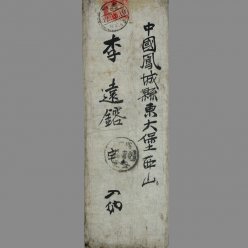 中國鳳城縣東大堡西山
李遠鐕
宅
入納